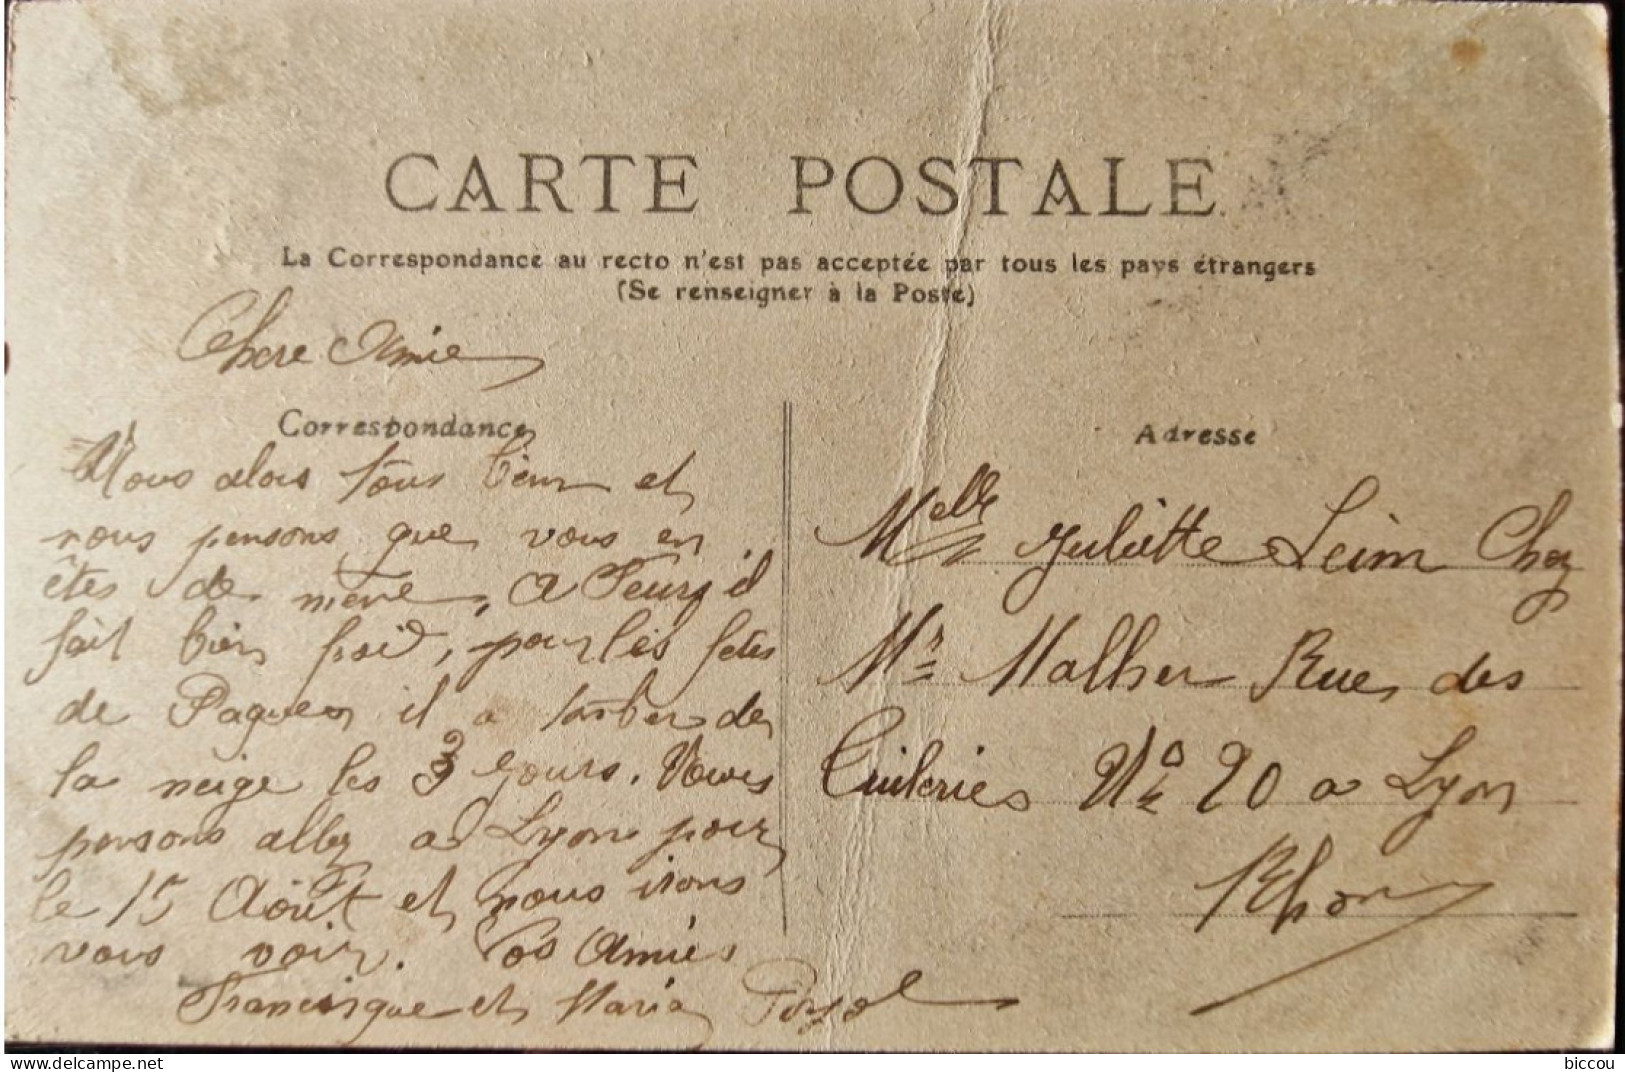 CARTE POSTALE
La Correspondance au recto n'est pas acceptée par tous les pays étrangers
(Se renseigner à la Poste)
Chere Amie
Correspondance
Nous alons tous bien et
nous pensons que vous en
êtes de même, a Feurs il
fait bien froid, pour les fetes
de Paques il a tomber de
la neige les 3 jours. Nous
pensons allez a Lyon pour
le 15 Août et nous irons
vous voir. Vos Amies
Francisque et Maria
Adresse
Melle Juliette Leim Chez
Mr Malher Rue des
Tuileries No 20 a Lyon
Rhone
delcampe.net
biccou